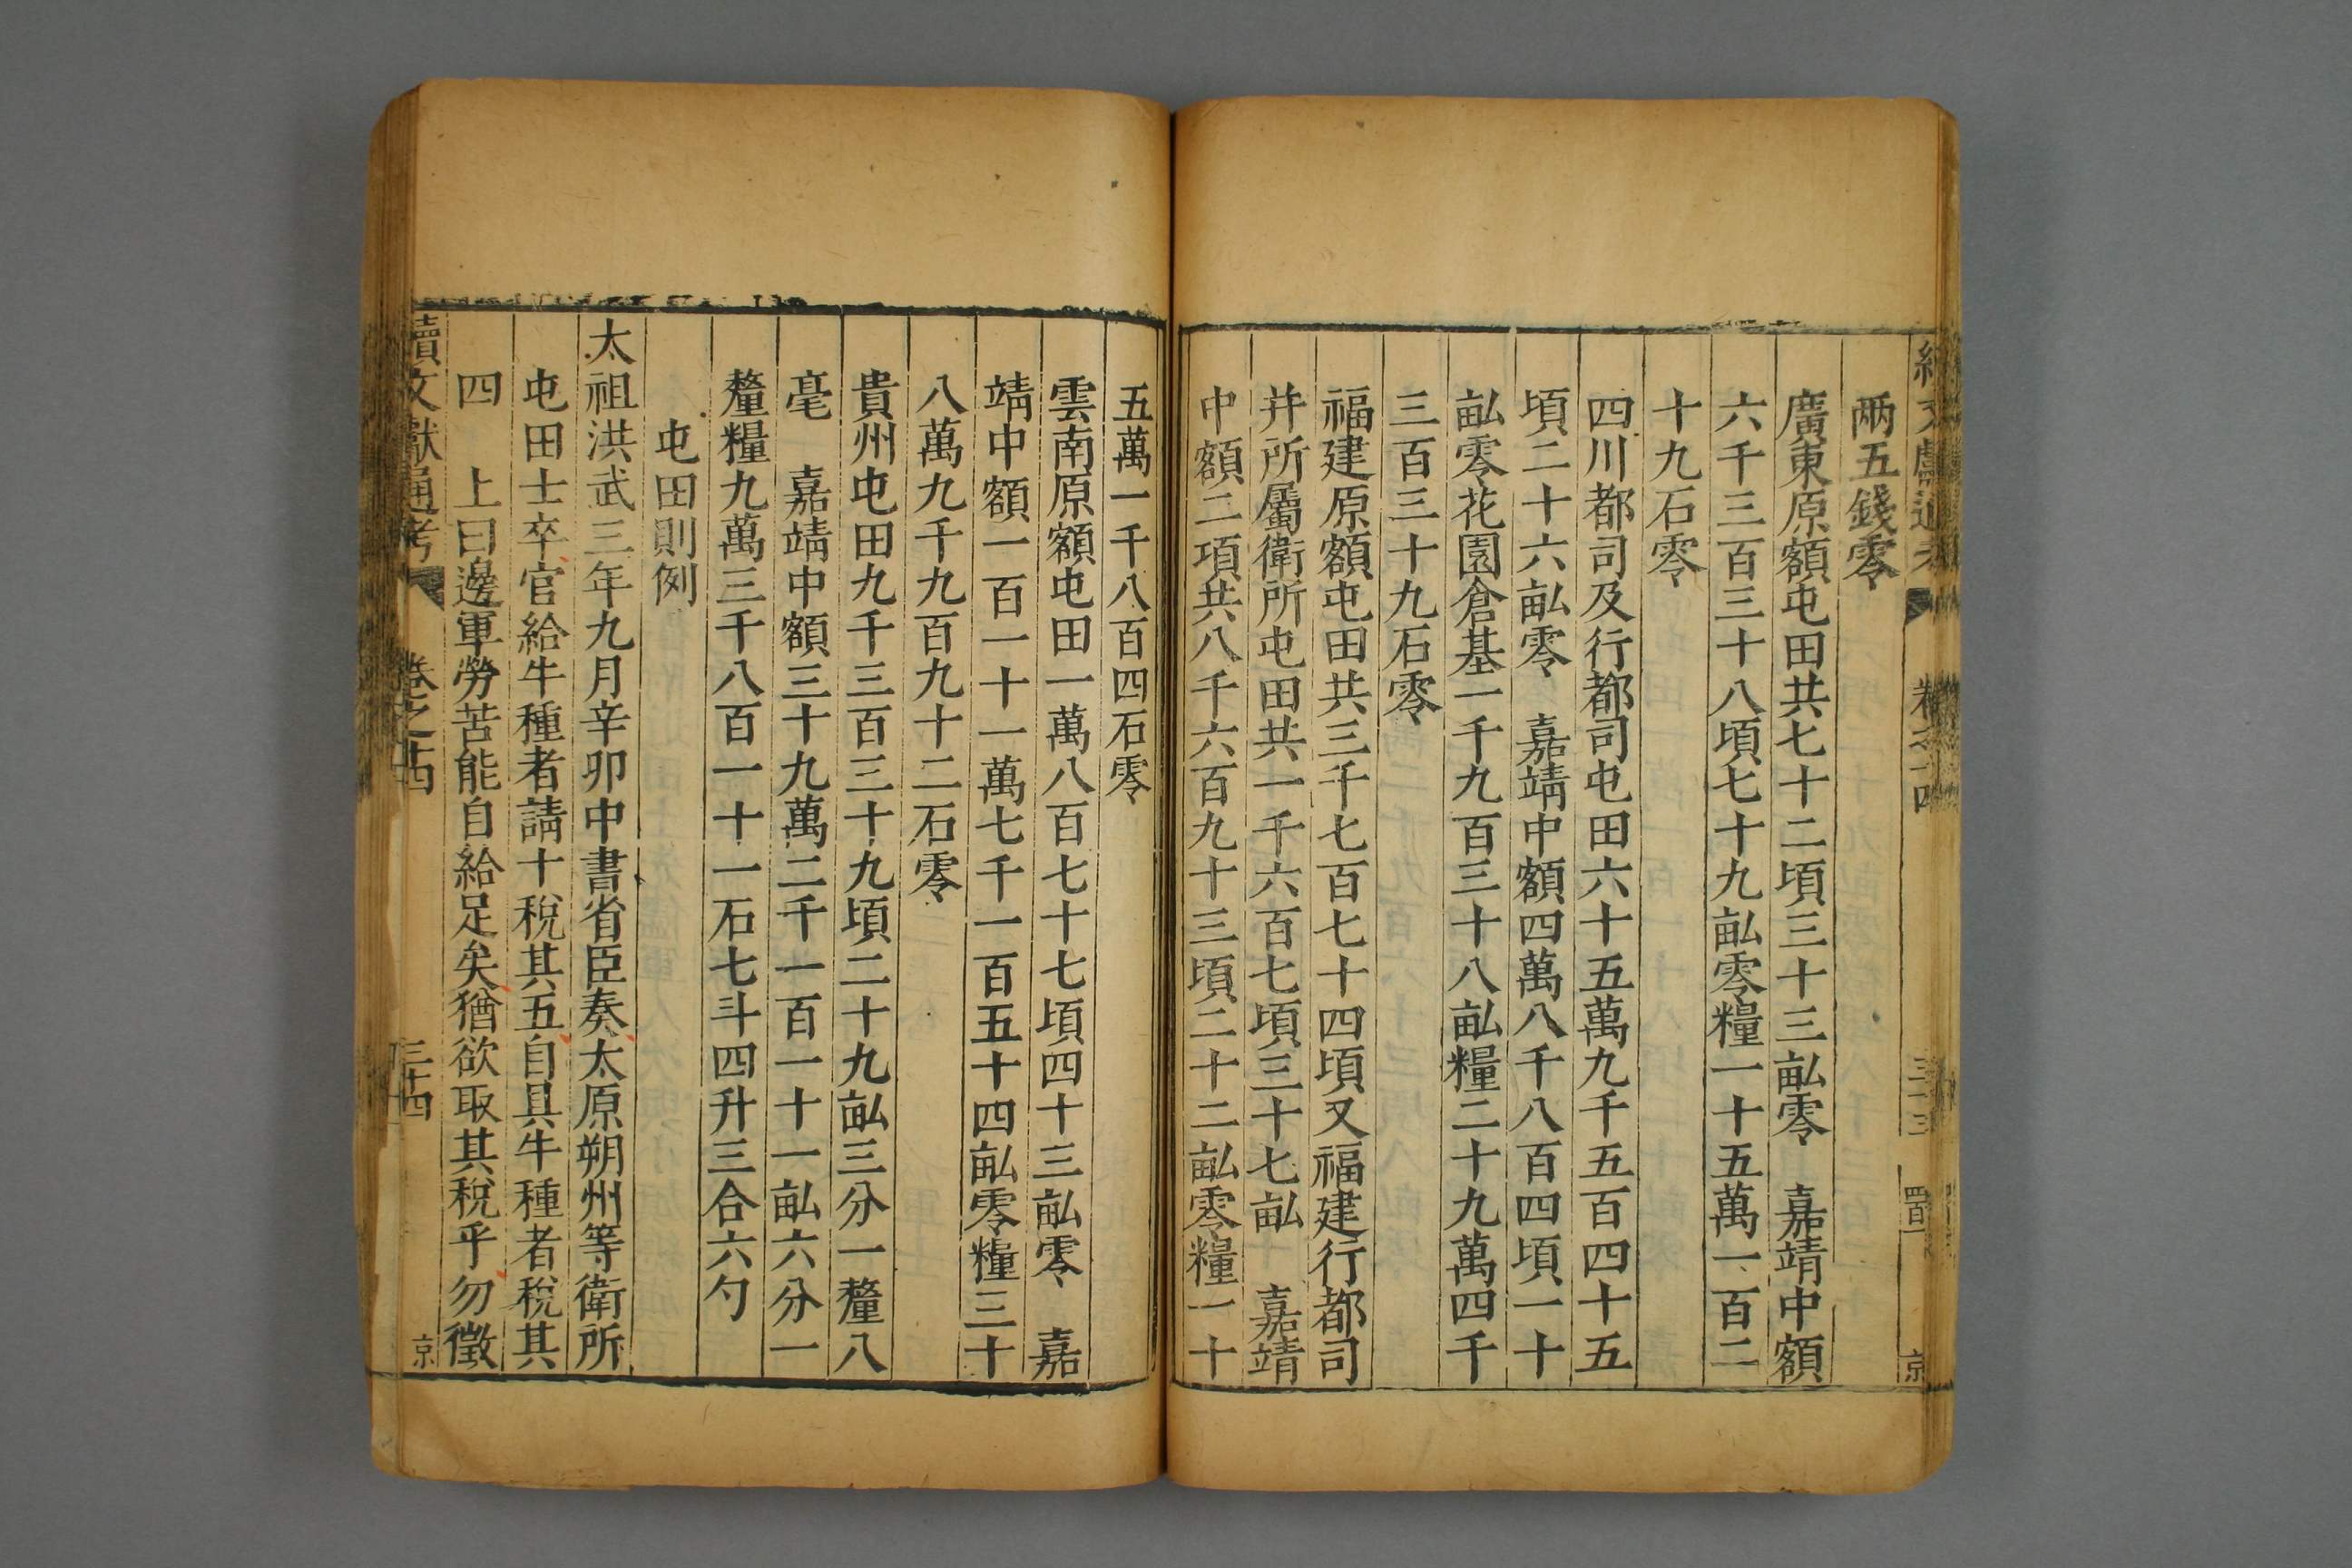 兩五錢零
廣東原額屯田共七十二頃三十三畆零　嘉靖中額
六千三百三十八頃七十九畆零糧一十五萬一百二
十九石零
四川都司及行都司屯田六十五萬九千五百四十五
頃二十六畆零　嘉靖中額四萬八千八百四頃一十
畆零花園倉基一千九百三十八畆糧二十九萬四千
三百三十九石零
福建原額屯田共三千七百七十四頃又福建行都司
并所屬衛所屯田共一千六百七頃三十七畆　嘉靖
中額二項共八千六百九十三頃二十二畆零糧一十
五萬一千八百四石零
雲南原額屯田一萬八百七十七頃四十三畆零　嘉
靖中額一百一十一萬七千一百五十四畆零糧三十
八萬九千九百九十二石零
貴州屯田九千三百三十九頃二十九畆三分一釐八
毫　嘉靖中額三十九萬二千一百一十一畆六分一
釐糧九萬三千八百一十一石七斗四升三合六勺
屯田則例
太祖洪武三年九月辛卯中書省臣奏太原朔州等衛所
屯田士卒官給牛種者請十稅其五自具牛種者稅其
四　上曰邊軍勞苦能自給足矣猶欲取其稅乎勿徵
續文獻通考　卷之十四　三十四　京